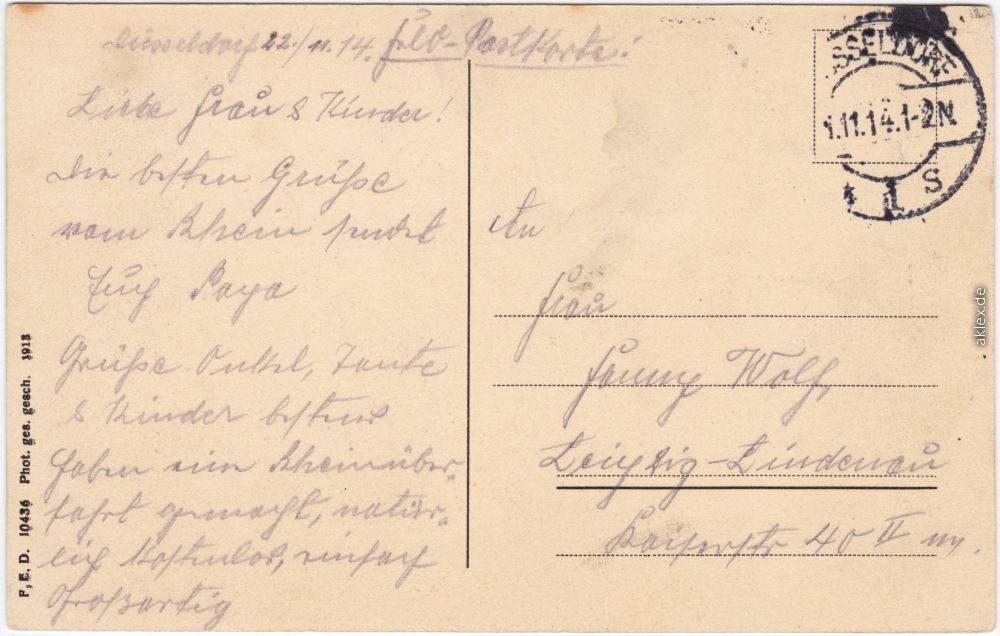 Düsseldorf 22./11.14. Feld-Postkarte!
Liebe Frau & Kinder!
Die besten Grüße
vom Rhein sendet
Euch Papa
Grüße Onkel, Tante
& Kinder bestens
haben eine Rheinüber-
fahrt gemacht, natür-
lich kostenlos, einfach
Großartig
An
Frau
Fanny Wolf,
Leipzig-Lindenau
Kaiserstr 40 II
SSELDORF
1.11.14.1-2N
* 1 s
F. E. D. 10436 Phot. ges. gesch. 1913
aklex.de